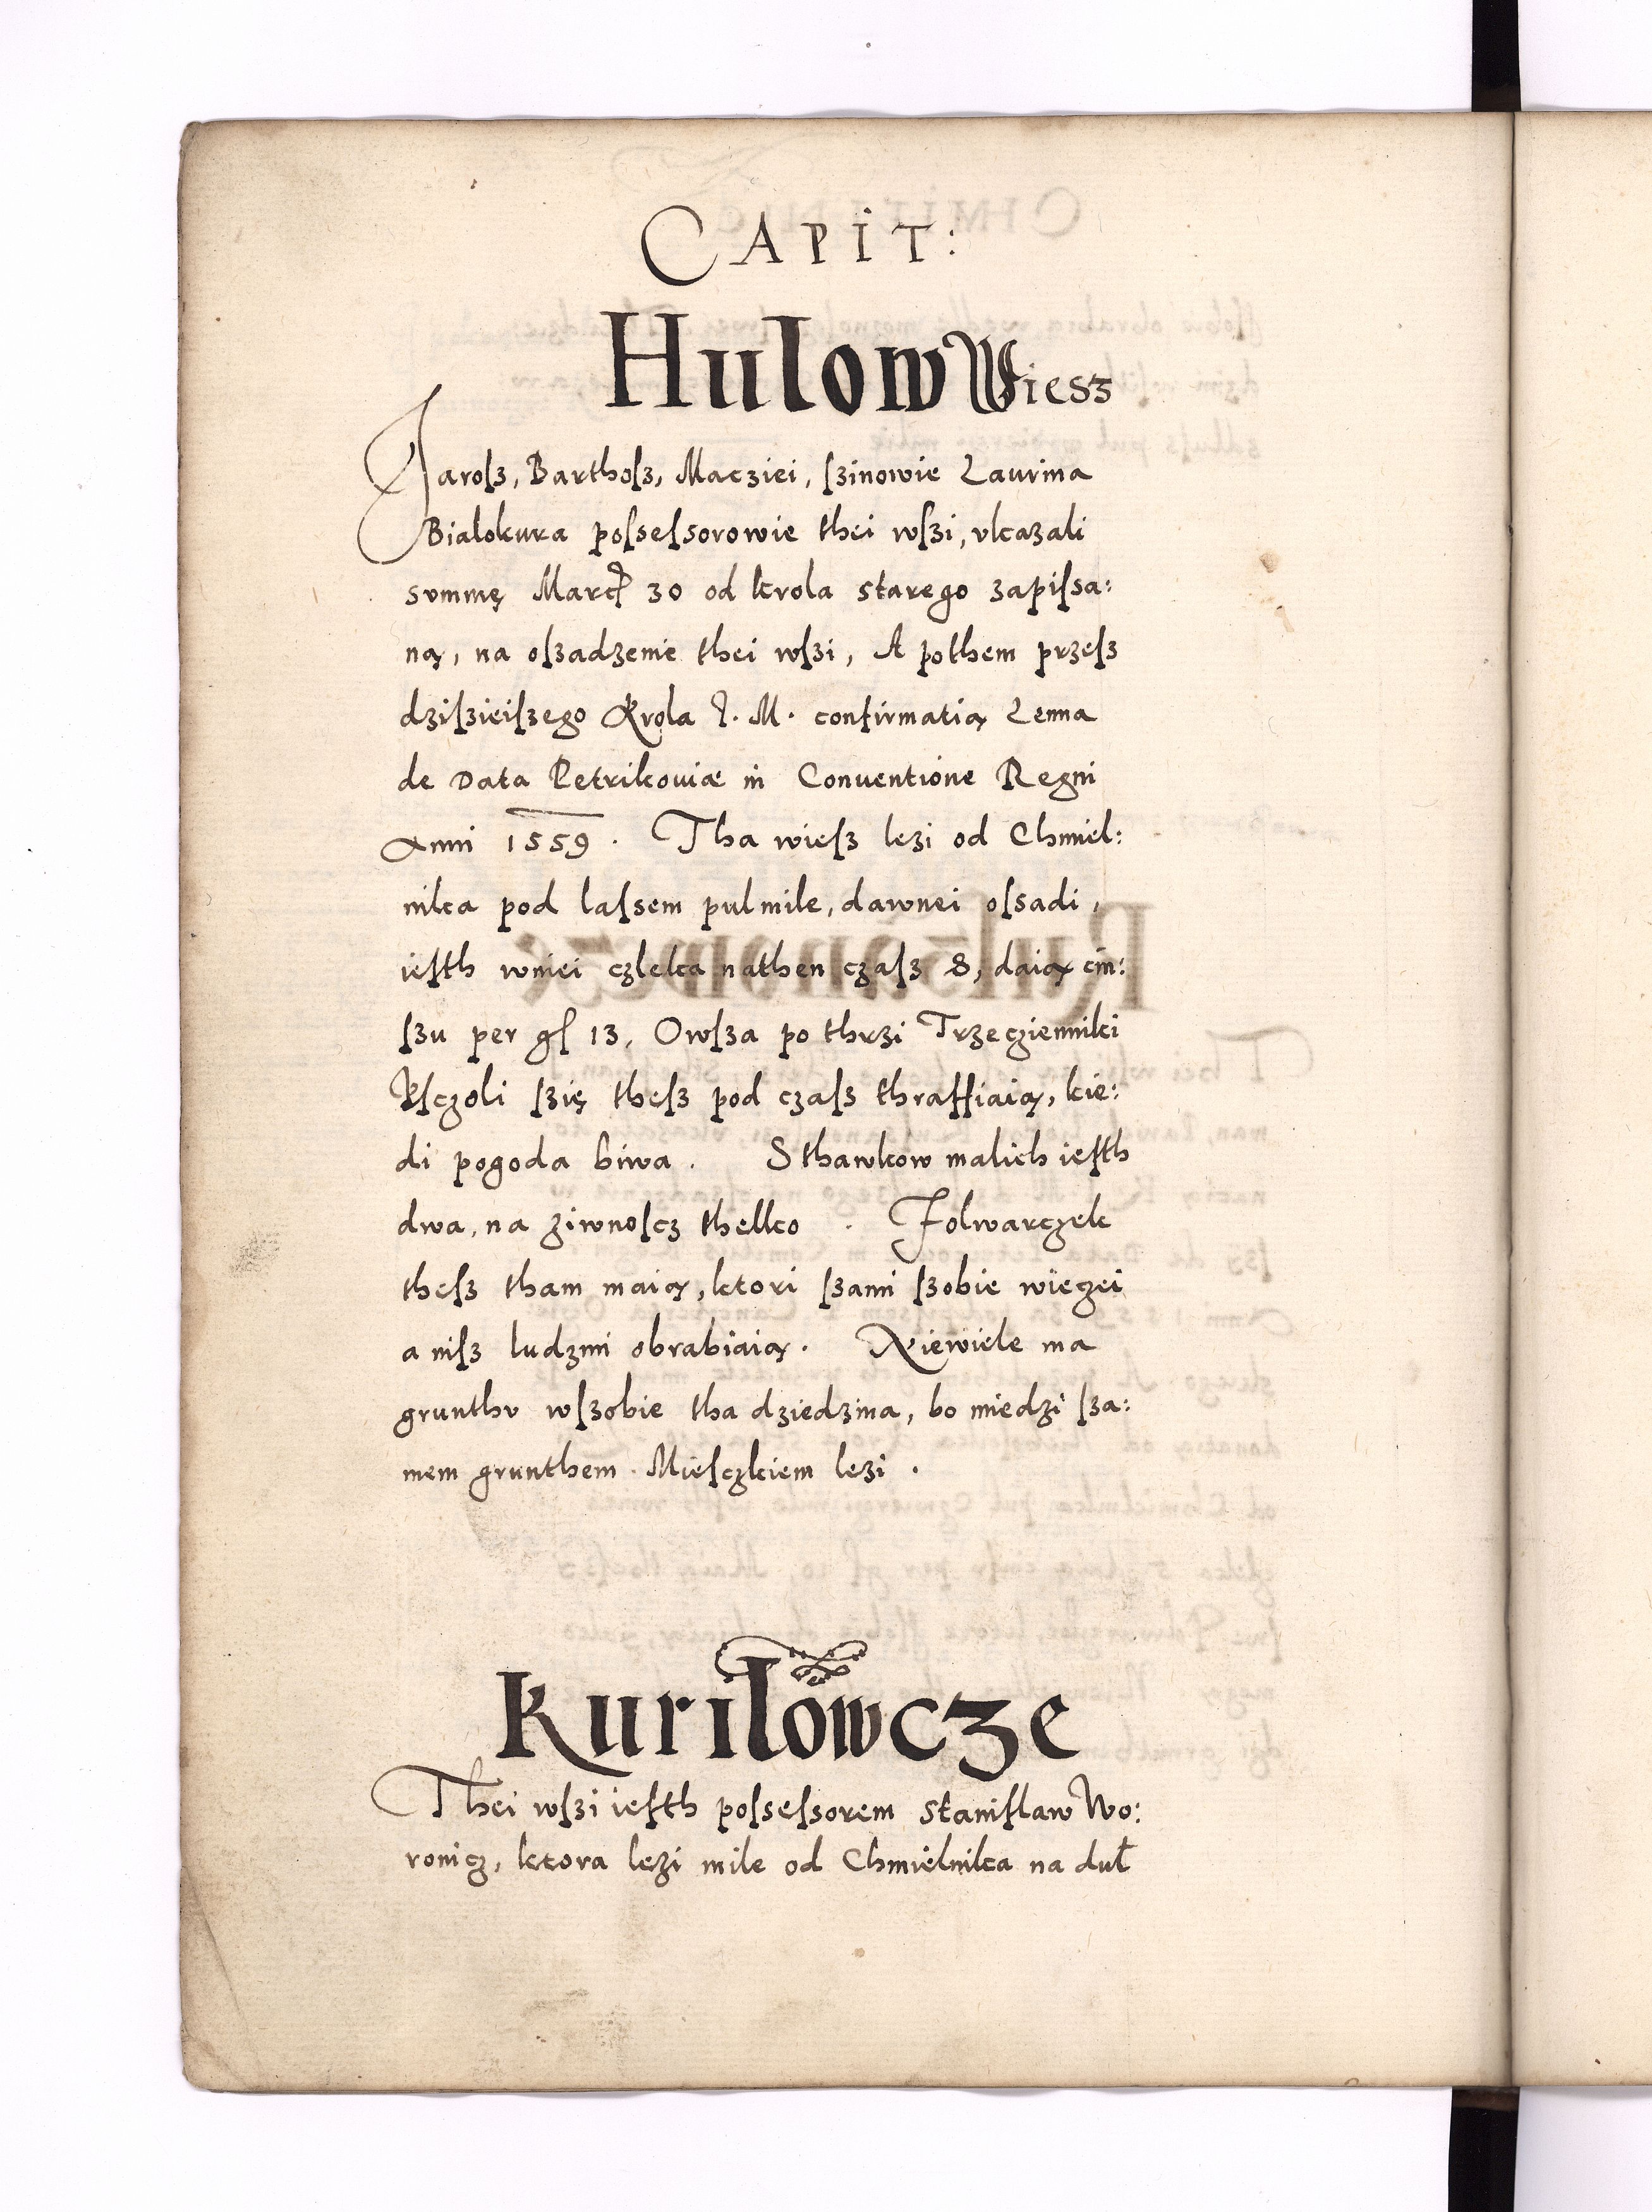 CAPIT:
Hulow Wiesz
Jaroſz, Barthoſz, Macziei, ſzinowie Laurina
Bialokura poſseſsorowie thei wſzi, vkazali
svmmę Marc 30 od krola starego zapiſsa:
ną, na oſzadzenie thei wſzi, A pothem przeſz
dziſzieiſzego Krola J. M. confirmatią Lenna
de Data Petrikouiæ in Conuentione Regni
Anni 1559. Tha wieſz lezi od Chmiel:
nika pod laſsem pulmile, dawnei oſsadi,
ieſth wniei czleka nathen czaſz 8, daią cin:
ſzu per gſ 13, Owſza po thrzi Trzeczienniki
Pſczoli ſzię theſz pod czaſs thraffiaią, kie:
di pogoda biwa. Sthawkow malich ieſth
dwa, na ziwnoſcz thelko. Folwarczek
theſz tham maią, ktori ſzami ſzobie wieczei
a niſz ludzmi obrabiaią. Niewiele ma
grunthv wſzobie tha dziedzina, bo miedzi ſza:
mem grunthem Mieſczkiem lezi.
Kurilowcze
Thei wſzi ieſth poſseſsorem Staniſlaw Wo:
ronicz, ktora lezi mile od Chmielnika na duł